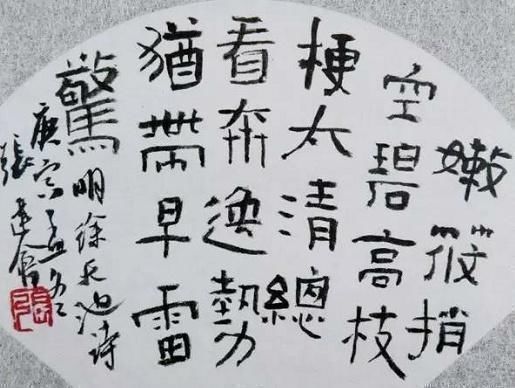 嫩筱捎
空碧高枝
梗太清總
看奔逸勢
猶帶早雷
驚明徐天池詩
庚寅孟冬
張建會